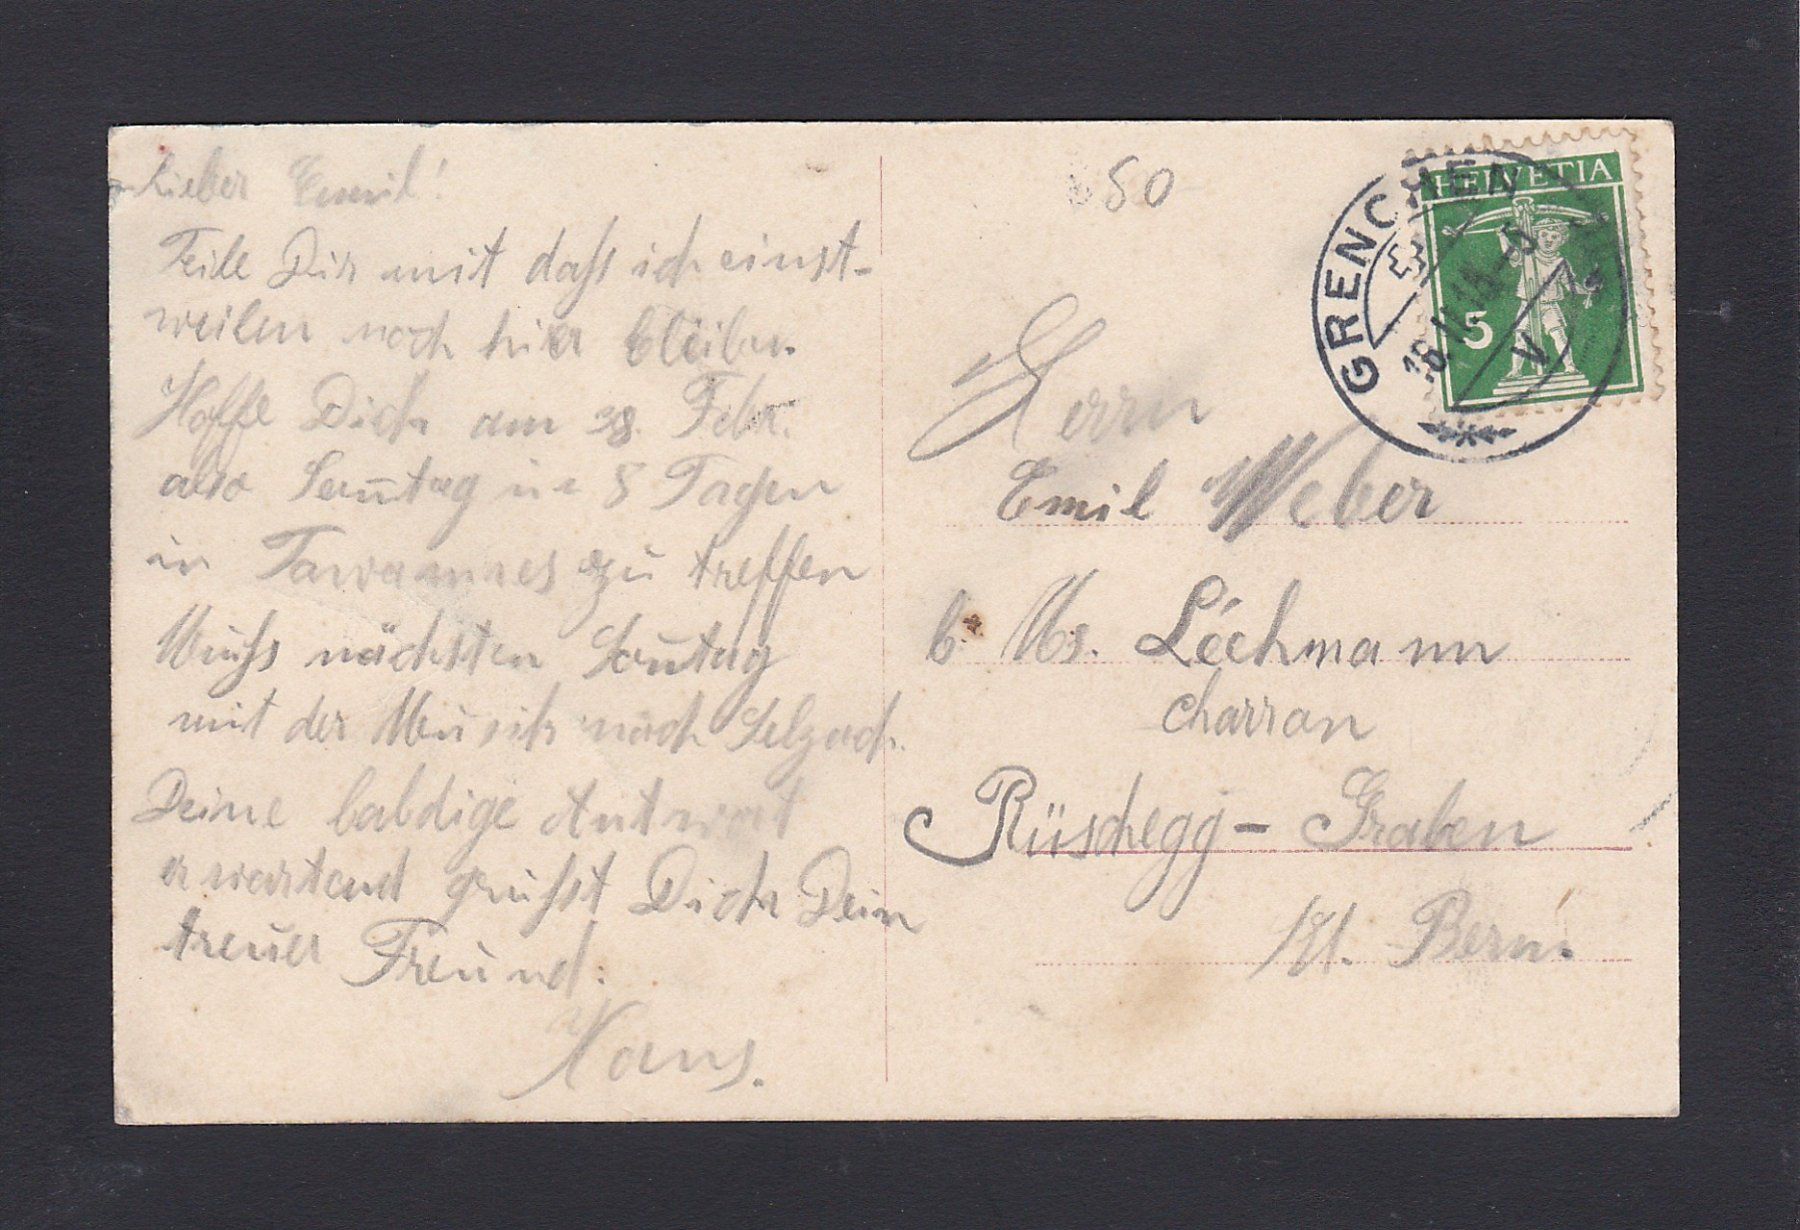 Lieber Emil!
Teile Dir mit dass ich einst-
weilen noch hier bleibe.
Hoffe Dich am 28. Febr.
also Son̅tag in 8 Tagen
in Tavannes zu treffen
Muss nächsten Son̅tag
mit der Musik nach Selzach.
Deine baldige Antwort
erwartend grüsst Dich Dein
treuer Freund:
Hans.
50
HELVETIA
5
GRENCHEN
V
Herrn
Emil Weber
b. Ms. Léchmann
Charron
Rüschegg-Graben
Kt. Bern.